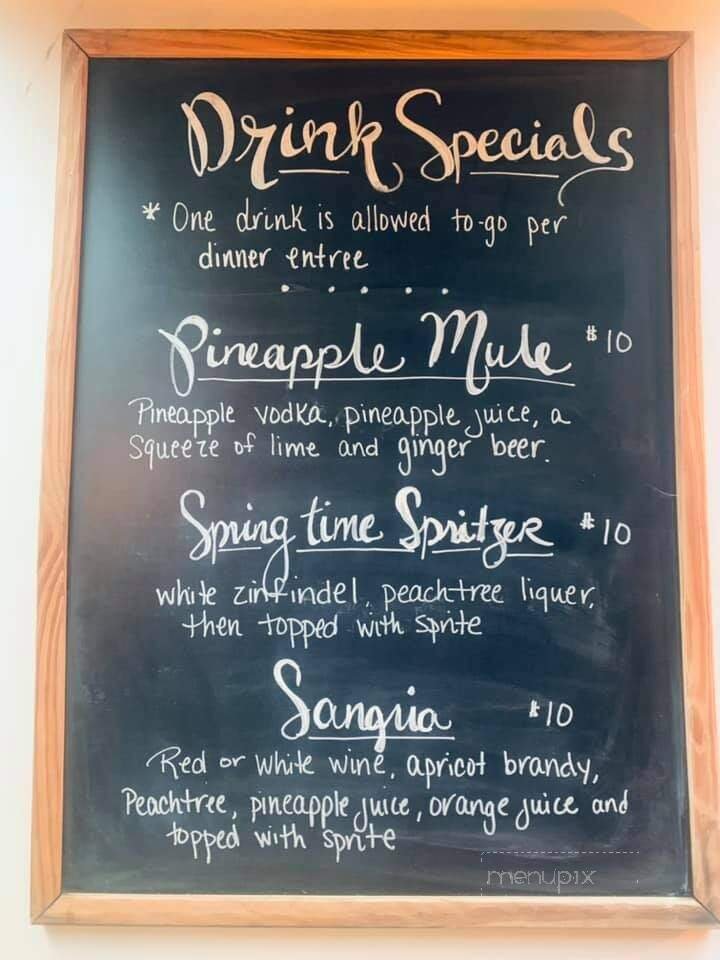 Drink Specials
* One drink is allowed to-go per
dinner entree
Pineapple Mule $10
Pineapple vodka, pineapple juice, a
squeeze of lime and ginger beer.
Spring time Spritzer $10
white zinfindel, peachtree liquer,
then topped with sprite
Sangria $10
Red or white wine, apricot brandy,
Peachtree, pineapple juice, orange juice and
topped with sprite
menupix